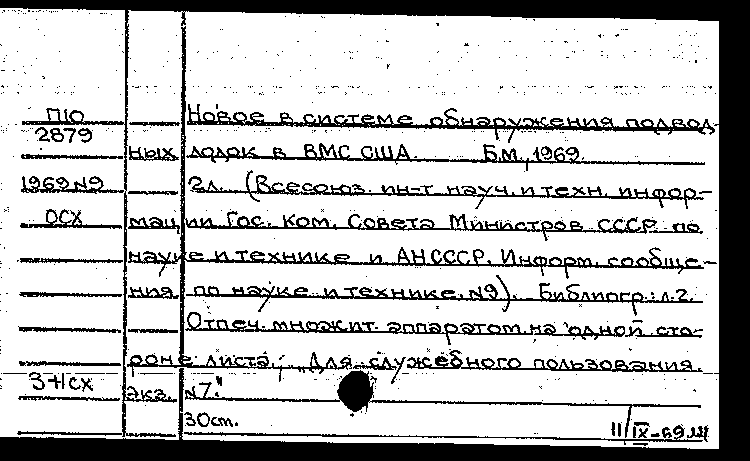 П10 Новое в системе обнаружения подвод-
2879
ных лодок в ВМС США. Б.М., 1969.
1969 №9 2л. (Всесоюз. ин-т науч. и техн. инфор-
ОСХ мации Гос. ком. Совета Министров СССР по
науке и технике и АН СССР. Информ. сообще-
ния по науке и технике. №9). Библиогр.: л.2.
Отпеч. множит. аппаратом на одной сто-
роне листа; „Для служебного пользования.
3+1сх экз. №7."
30 ст.
11/IX-69